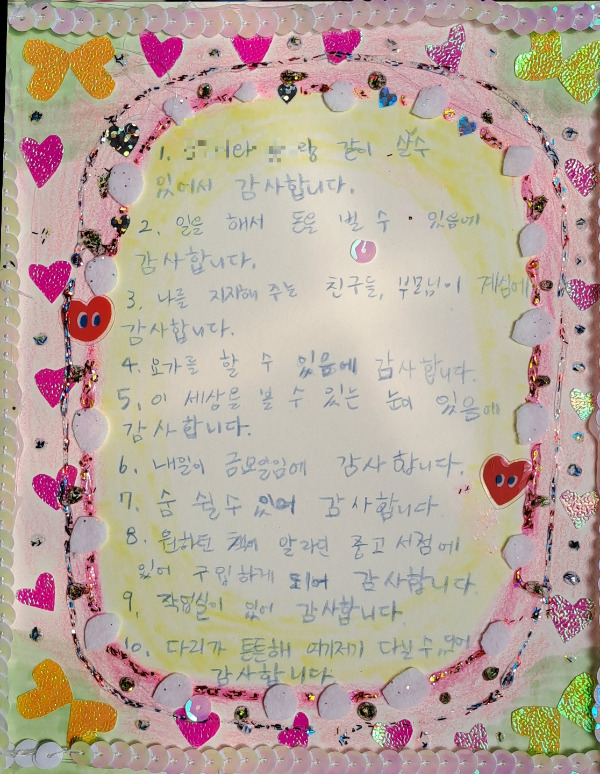 1. 이랑 랑 같이 살수
있어서 감사합니다.
2. 일을 해서 돈을 벌 수 있음에
감사합니다.
3. 나를 지지해 주는 친구들, 부모님이 계심에
감사합니다.
4. 요가를 할 수 있음에 감사합니다.
5. 이 세상을 볼 수 있는 눈이 있음에
감사합니다.
6. 내일이 금요일임에 감사합니다.
7. 숨 쉴 수 있어 감사합니다
8. 원하던 책이 알라딘 중고서점에
있어 구입하게 되어 감사합니다.
9. 작업실이 있어 감사합니다.
10. 다리가 튼튼해 여기저기 다닐 수 있어
감사합니다